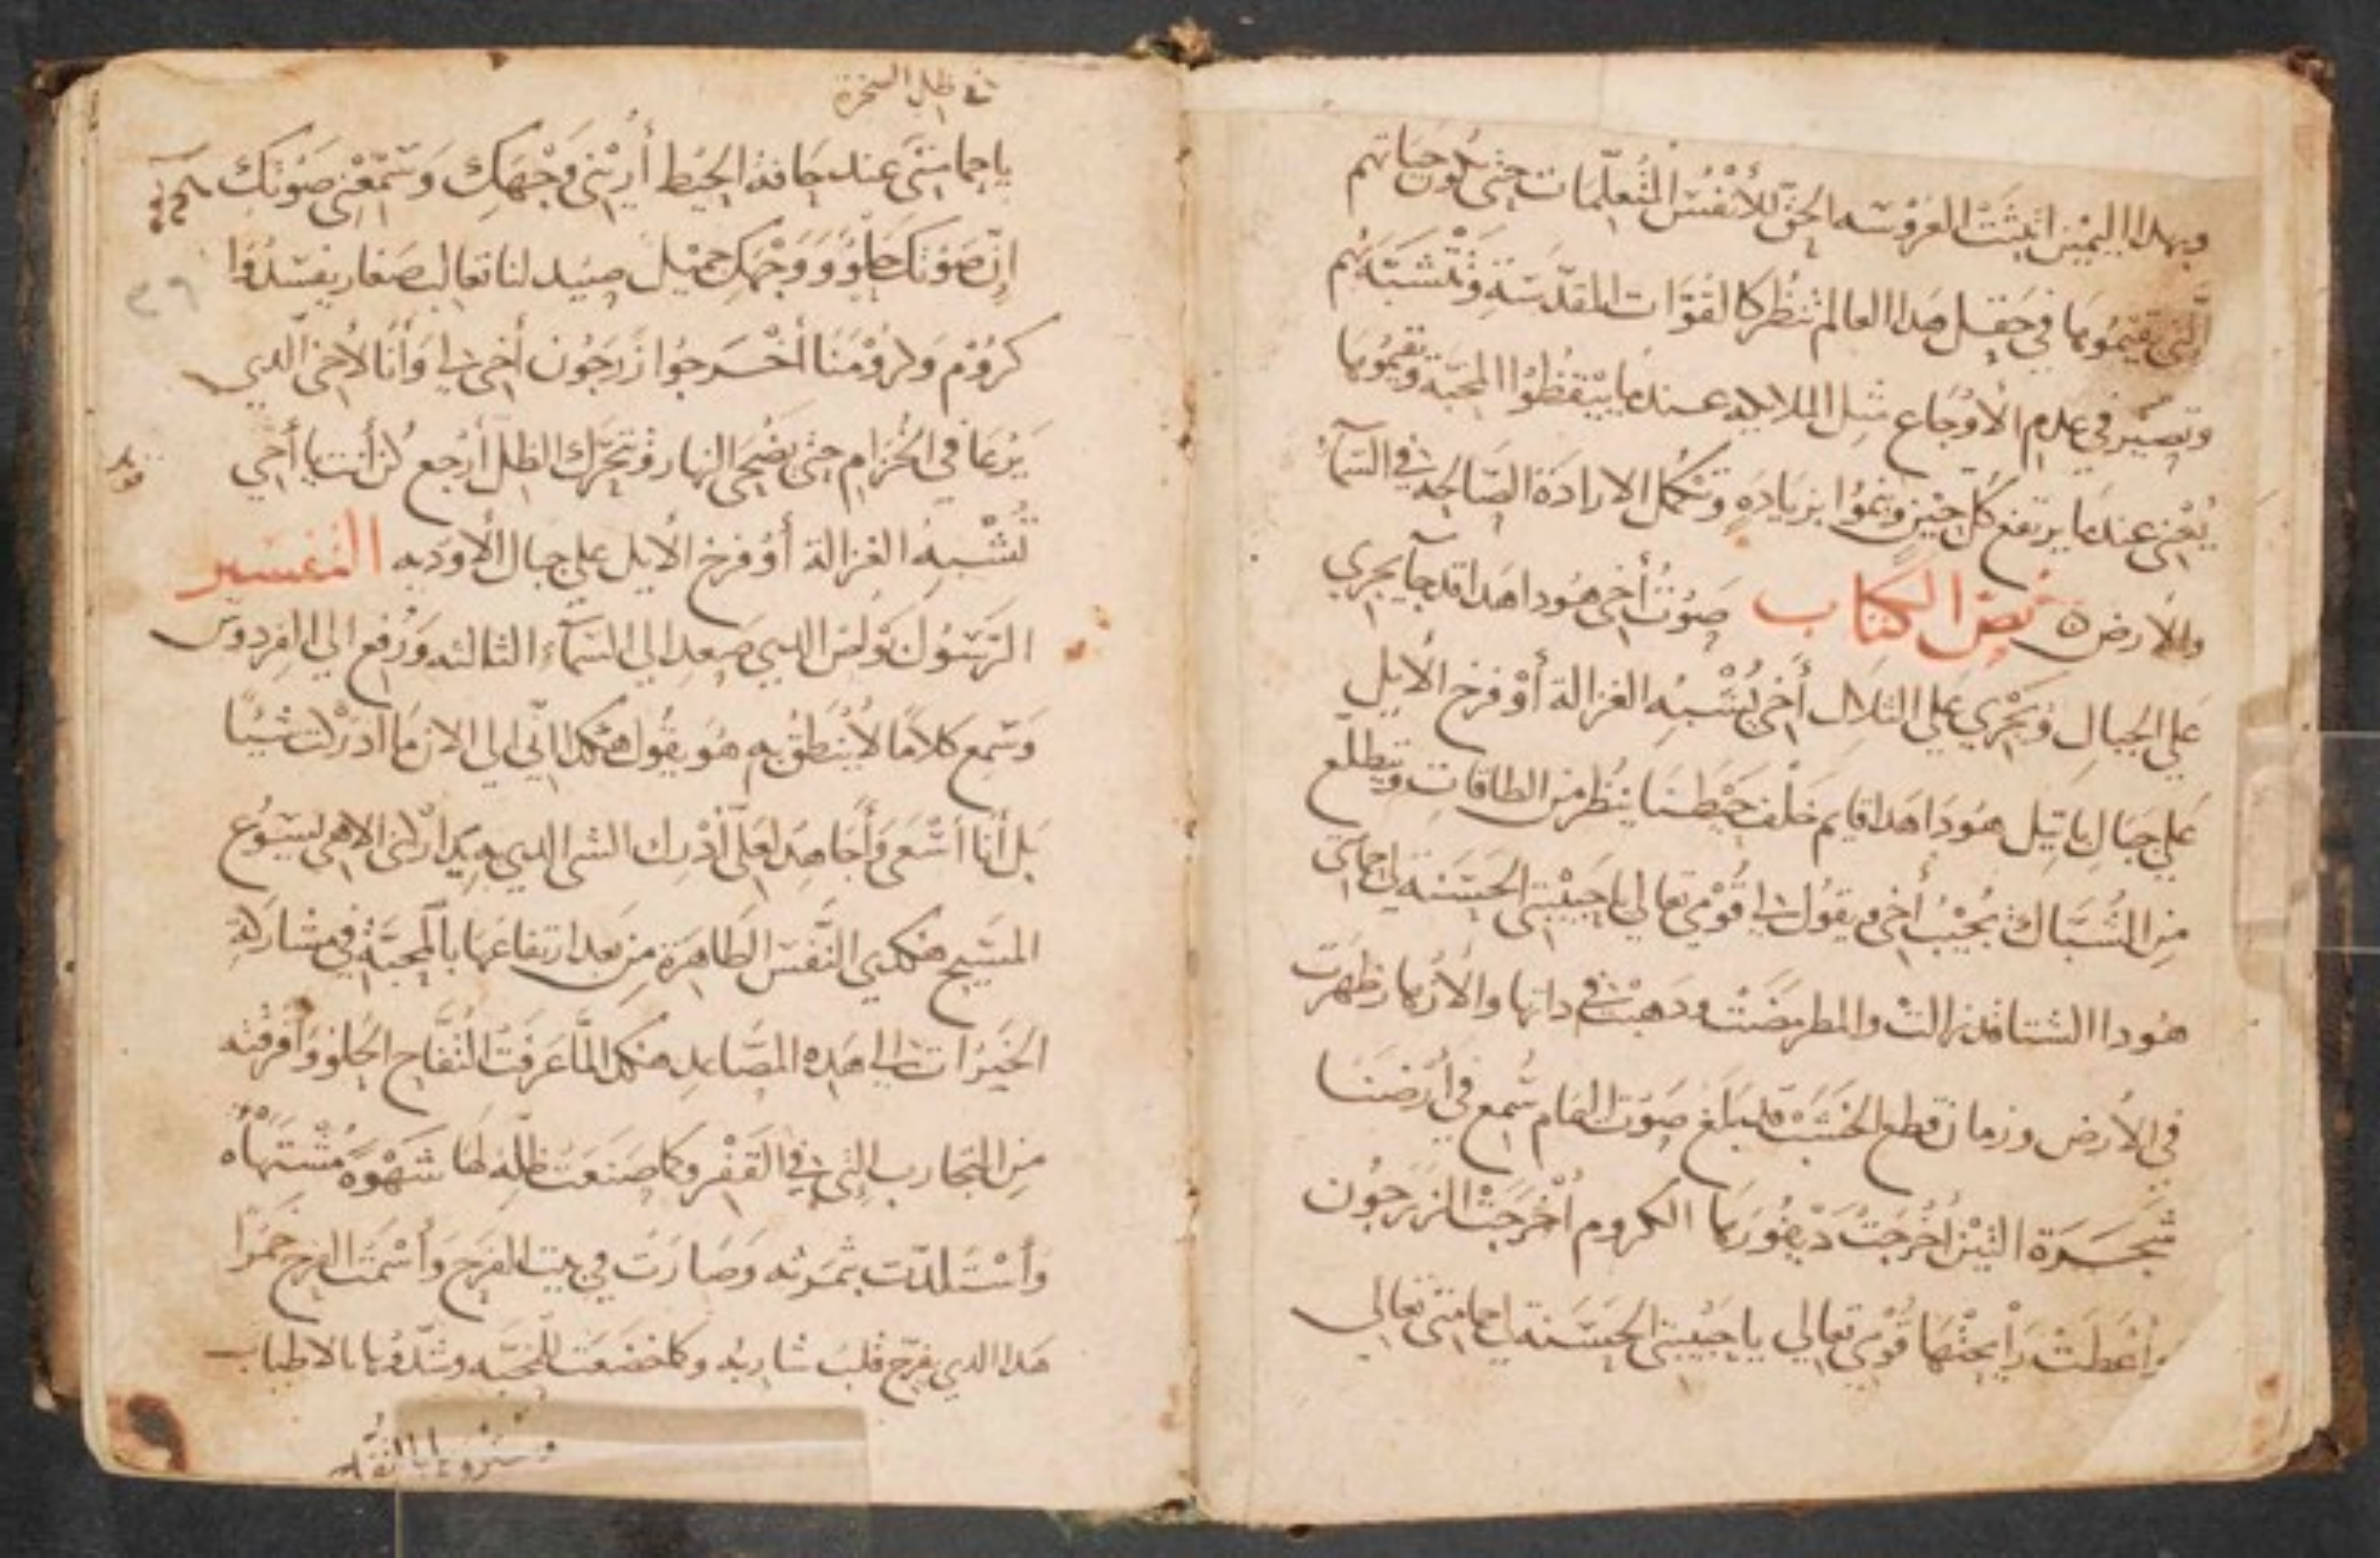 وبهدا اليمين اتبتت العروسه الحق للأنفس المتعلمات حتى تكون حياتهم
التى يقيموها في حقل هدا العالم تنظر كالقوات المقدسه وتتشبه بهم
وتصير في عدم الأوجاع مثل الملايكه عندما ييقظوا المحبة ويقيموها
يعنى عندما يرتفع كل حين وينموا بزياده وتكمل الارادة الصالحه في السمآ
والارض ٥ نص الكتاب صوت أخى هودا هدا قد جآ يجري
علي الجبال ويجري علي التلال أخى يشبه الغزالة أو فرخ الأيل
علي جبال باتيل هودا هدا قايم خلف حيطنا ينظر من الطاقات ويتطلع
من الشباك يجيب أخى ويقول لى قومي تعالي يا حبيبتى الحسنه يا حمامتى
هودا الشتا قد زالت والمطر مضت ودهبت في داتها والأزهار ظهرت
في الأرض وزمان قطع الخشب قد بلغ صوت اليمام سمع في أرضنا
شجرة التين أخرجت ديفورها الكروم أخرجت الزرجون
وأعطت رأيحتها قومي تعالي يا حبيبتى الحسنه يا حمامتى تعالي
في ظل الصخرة
يا حمامتى عند حافة الحيط أرينى وجهك وسمعنى صوتك
إن صوتك حلو ووجهك جميل صيد لنا تعالب صغار يفسدوا
كروم وكرومنا أخرجوا زرجون أخى لى وأنا لأخى الدي
يرعا في الخزام حتى يضحى النهار وتتحرك الظل أرجع كن أنت يا أخي
تشبه الغزالة أو فرخ الأيل علي جبال الأوديه التفسير
الرسول بولص الدي صعد الي السمآء التالته ورفع الي الفردوس
وسمع كلاما لا ينطق به هو يقول هكدا انى الي الان ما ادركت شيا
بل أنا اسعي وأجاهد لعلى أدرك الشى الدي به ادركنى الاهى يسوع
المسيح هكدي النفس الطاهرة من بعد ارتفاعها بالمحبة في مشاركة
الخيرات الى هده المصاعد هكدا لما عرفت التفاح الحلو وأفرقته
من التجارب التى في القفر وكما صنعت ظله لها شهوة مشتهاه
وأستلدت بتمرته وصارت في بيت الفرح وأسمت الفرح خمرا
هدا الدي يفرح قلب شاربه وكما خضعت للمحبه وشدوها بالاطياب